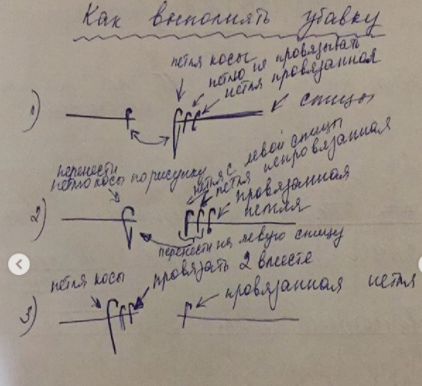 Как выполнять убавку
1)
петля косы
петлю не провязывать
петля провязанная
спицы
2)
перенести
петлю косы по рисунку
петля с левой спицы
петля непровязанная
провязанная
петля
перенести на левую спицу
3)
петля косы
провязать 2 вместе
провязанная петля